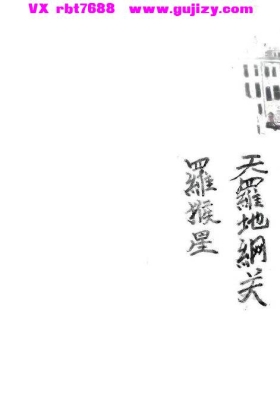 VX rbt7688 www.gujizy.com
天羅地網关
四羅猴星